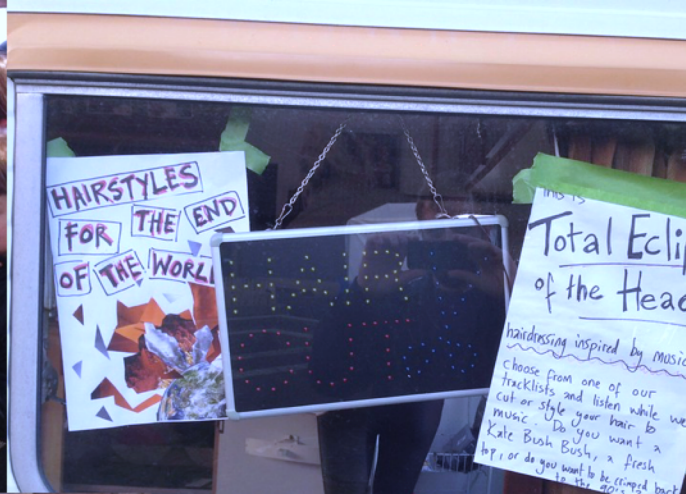 HAIRSTYLES
FOR THE END
OF THE WORL
HAIR
CUTS
This is
Total Eclip
of the Hea
hairdressing inspired by music
choose from one of our
tracklists and listen while we
cut or style your hair to
music. Do you want a
Kate Bush Bush, a fresh
top, or do you want to be crimped back
to the 90's?